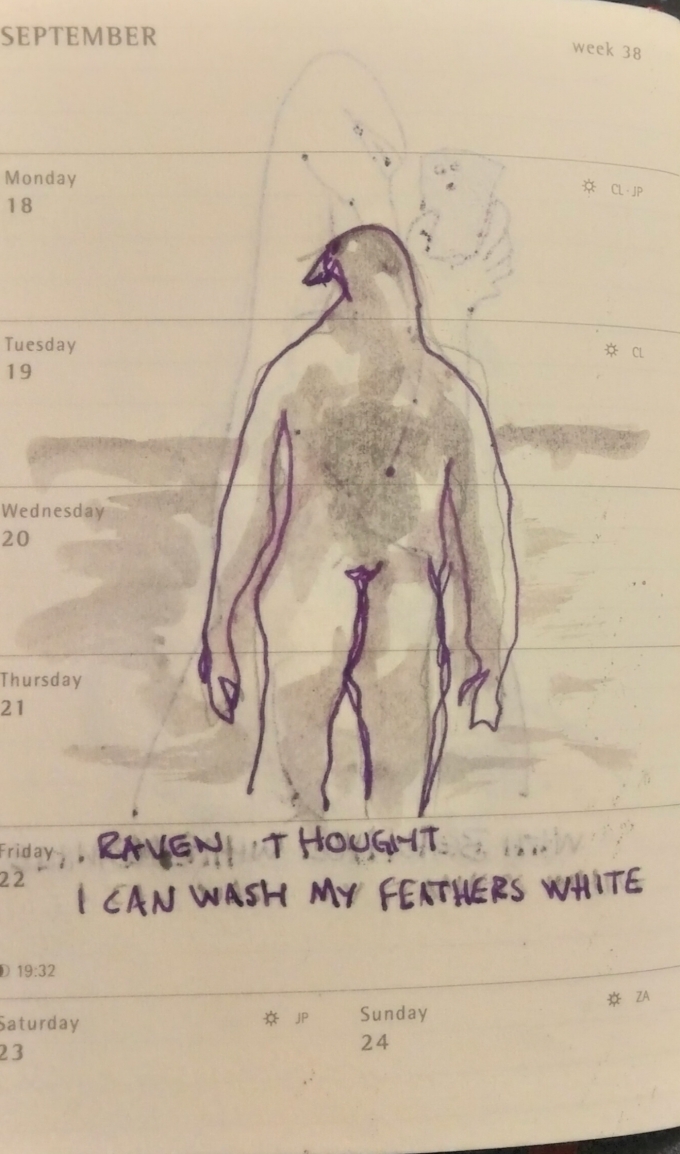 SEPTEMBER
week 38
Monday
18
CL · JP
Tuesday
19
CL
Wednesday
20
Thursday
21
Friday
22
RAVEN THOUGHT
I CAN WASH MY FEATHERS WHITE
19:32
Saturday
23
JP
Sunday
24
ZA